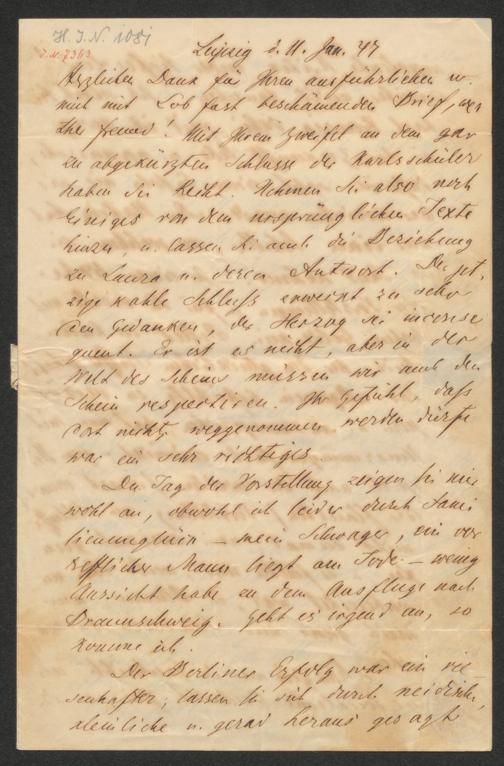 H. I. N. 1081
I. N. 7363
Leipzig d. 11. Jan. 47
Herzlichen Dank für Ihren ausführlichen u.
mich mit Lob fast beschämenden Brief, wer
ther Freund! Mit Ihrem Zweifel an dem gar
zu abgekürzten Schlusse der Karlsschüler
haben Sie Recht. Nehmen Sie also noch
Einiges von dem ursprünglichen Texte
hinzu, u. lassen Sie auch die Beziehung
zu Laura u. deren Antwort. Der jet,
zige kahle Schluß erweckt zu sehr
den Gedanken, der Herzog sei inconse
quent. Er ist es nicht, aber in der
Welt des Scheins müssen wir auch den
Schein respectiren. Ihr Gefühl, daß
dort nichts weggenommen werden dürfte
war ein sehr richtiges.
Den Tag der Vorstellung zeigen Sie mir
wohl an, obwohl ich leider durch Fami
lienunglück – mein Schwager, ein vor
trefflicher Mann liegt am Tode – wenig
Aussicht habe zu dem Ausfluge nach
Braunschweig. Geht es irgend an, so
komme ich.
Der Berliner Erfolg war ein rie
senhafter; lassen Sie sich durch neidische,
kleinliche u. gerad heraus gesagt